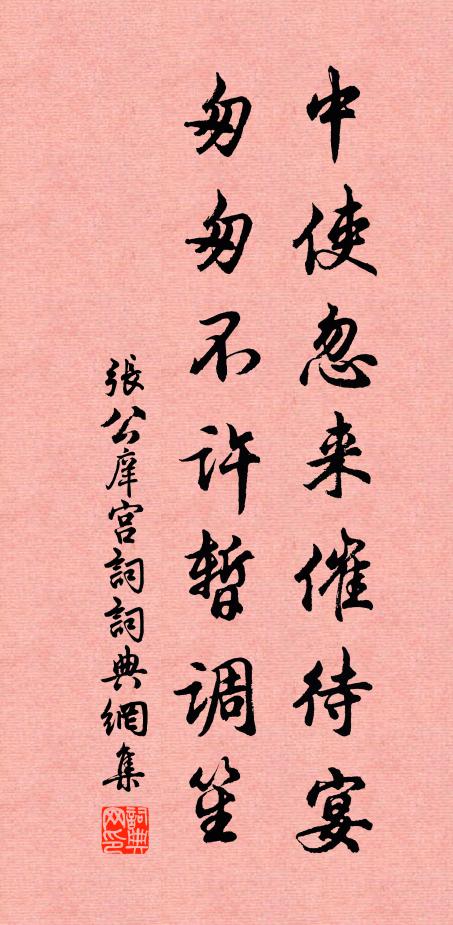 中使忽来催待宴
匆匆不许暂调笙
張公庠宫詞詞典網集
詞典网印